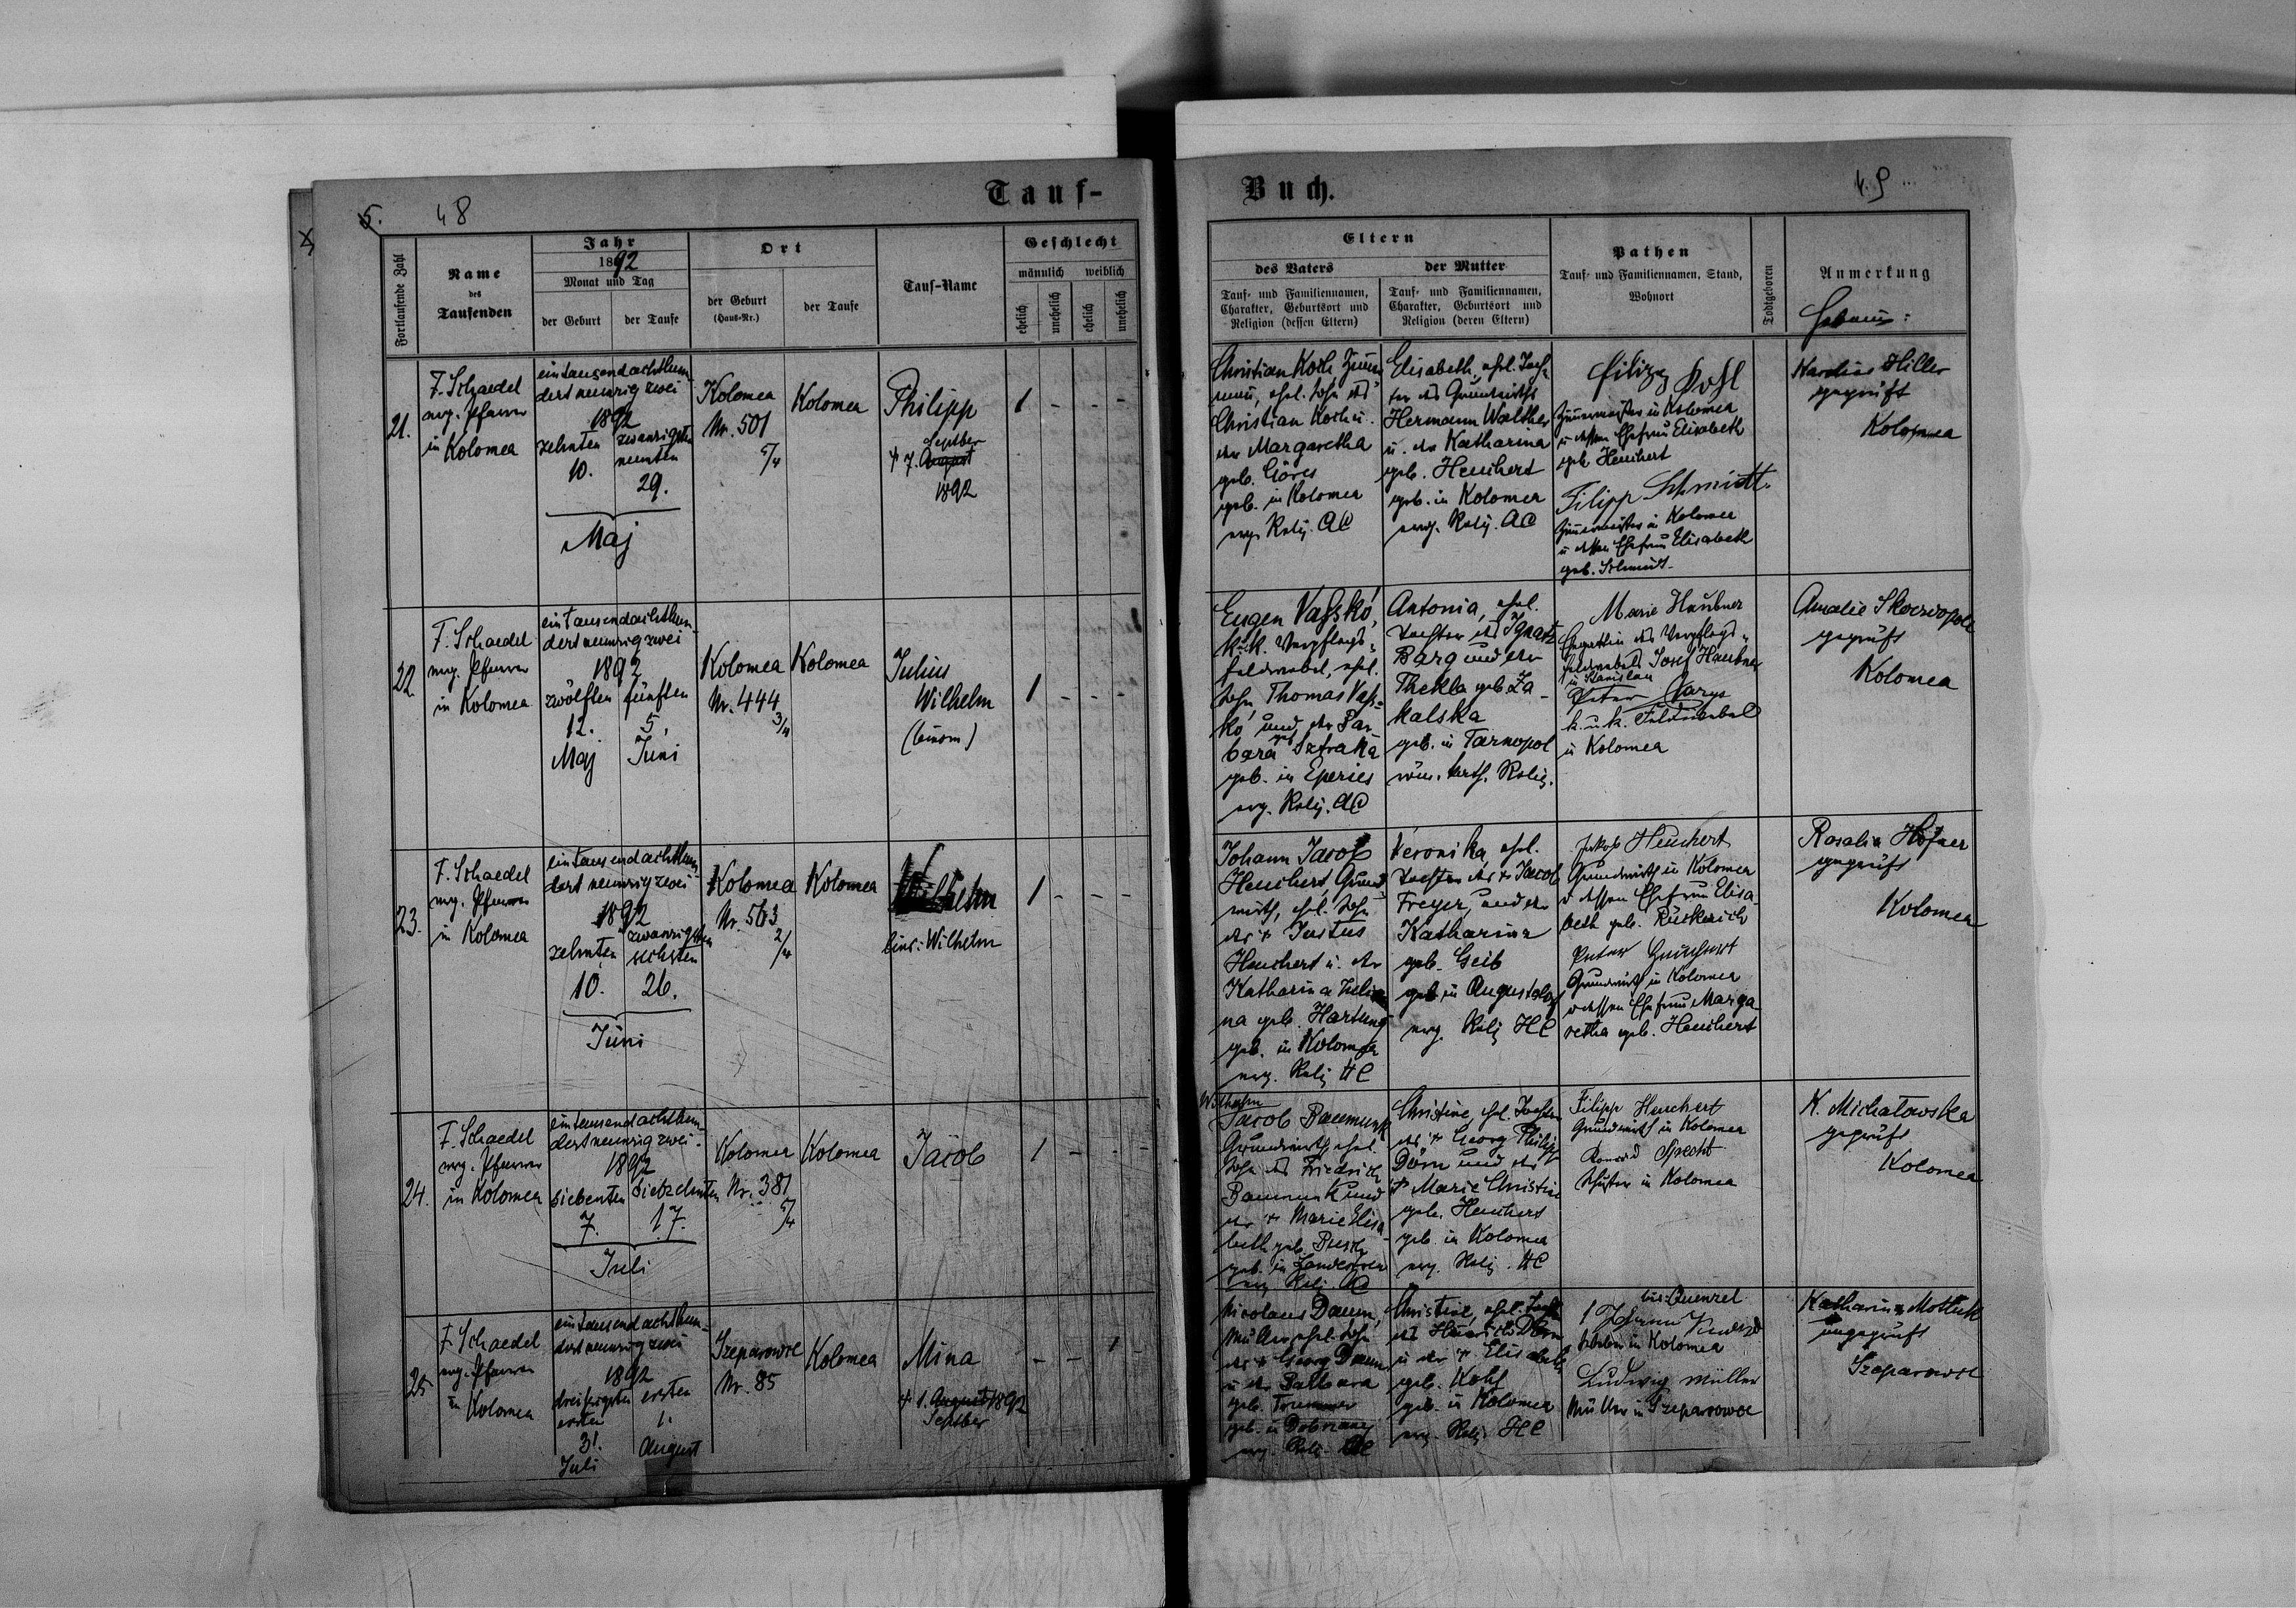 5. 48
Tauf-
Fortlaufende Zahl
Name
des
Taufenden
Jahr
1892
Monat und Tag
der Geburt
der Taufe
Ort
der Geburt
(Haus-Nr.)
der Taufe
Tauf-Name
Geschlecht
männlich
weiblich
ehelich
unehelich
ehelich
unehelich
21.
F. Schaedel
evg. Pfarrer
in Kolomea
eintausendachthun-
dertneunzigzwei
1892
zehnten
10.
zwanzigsten
neunten
29.
Maj
Kolomea
Nr. 501
5/4
Kolomea
Philipp
Septber
† 7. August
1892
1 - - -
22.
F. Schaedel
evg. Pfarrer
in Kolomea
eintausendachthun-
dertneunzigzwei
1892
zwölften
12.
Maj
fünften
5.
Juni
Kolomea
Nr. 444
3/4
Kolomea
Julius
Wilhelm
(binom)
1 - - -
23.
F. Schaedel
evg. Pfarrer
in Kolomea
eintausendachthun-
dertneunzigzwei
1892
zehnten
10.
zwanzigsten
sechsten
26.
Juni
Kolomea
Nr. 563
2/4
Kolomea
Wilhelm
lies: Wilhelm
1 - - -
24.
F. Schaedel
evg. Pfarrer
in Kolomea
eintausendachthun-
dertneunzigzwei
1892
siebenten
7.
siebzehnten
17.
Juli
Kolomea
Nr. 381
5/4
Kolomea
Jacob
1 - - -
25.
F. Schaedel
evg. Pfarrer
in Kolomea
eintausendachthun-
dertneunzigzwei
1892
dreißigsten
ersten
31.
Juli
ersten
1.
August
Szeparowce
Nr. 85
Kolomea
Mina
† 1. August 1892
Septber
- - 1 -
Buch.
49
Eltern
des Vaters
Tauf- und Familiennamen,
Charakter, Geburtsort und
Religion (dessen Eltern)
der Mutter
Tauf- und Familiennamen,
Charakter, Geburtsort und
Religion (deren Eltern)
Pathen
Tauf- und Familiennamen, Stand,
Wohnort
Todtgeboren
Anmerkung
Hebamme:
Christian Koch Zimer
mann, ehel. Sohn des
Christian Koch u.
der Margaretha
geb. Göres
geb. in Kolomea
evg. Relig. AC
Elisabeth, ehel. Toch-
ter des Grundwirths
Hermann Walther
u. der Katharina
geb. Heuchert
geb. in Kolomea
evg. Relig. AC
Filipp Pohl
Zimermeister in Kolomea
u dessen Ehefrau Elisabeth
geb Heuchert
Filipp Schmidt.
Zimermeister in Kolomea
u dessen Ehefrau Elisabeth
geb. Schmidt
Hiller
geprüft
Kolomea
Eugen Vaßkó,
k.u.k. Verpflegs-
feldwebel, ehel.
Sohn Thomas Vaß-
kó und der Bar-
bara geb. Sztraka
geb. in Eperies
evg. Relig. AC
Antonia, ehel.
Tochter des Ignatz
Barg und der
Thekla geb. Za-
kalska
geb. in Tarnopol
röm. kath. Relig.
Marie Haubner
Ehegattin des Verpflegs-
feldwebels Josef Haubner
in Stanislau
Peter
k.u.k. Feldwebel
in Kolomea
Amalie
geprüft
Kolomea
Johann Jacob
Heuchert, Grund-
wirth, ehel. Sohn
des † Justus
Heuchert u. der
Katharina Julia-
na geb. Hartung
geb. in Kolomea
evg. Relig HC
Veronika, ehel.
Tochter des † Jacob
Freyer, und der
Katharina
geb. Geib
geb. in Augustdorf
evg. Relig HC
Jakob Heuchert
Grundwirth in Kolomea
u dessen Ehefrau Elisa-
beth geb. Rückerich
Peter Heuchert
Grundwirth in Kolomea
u dessen Ehefrau Marga
retha geb. Heuchert
Rosalia Höfner
geprüft
Kolomea
Wilhelm
Jacob Baumunk
Grundwirth, ehel.
Sohn des Friedrich
Baumunk und
der † Marie Elisa-
beth geb. Busch
geb. in
evg. Relig.
Christine, ehel. Tochter
des † Georg Philipp
Dörn und der
† Marie Christine
geb. Heuchert
geb. in Kolomea
evg. Relig. HC
Filipp Heuchert
Grundwirth in Kolomea
Konrad Specht
Schuster in Kolomea
K. Michałowska
geprüft
Kolomea
Nicolaus Daum,
Müller, ehel. Sohn
des † Georg Daum
u der Barbara
geb. Trummer
geb. in
evg. Relig.
Christine, ehel. Tocht
des Heinrich
u der † Elisabeth
geb. Kohl
geb. in Kolomea
evg. Relig HC
lies: Quenzel
Johann
in Kolomea
Ludwig Müller
Müller in Szeparowce
Katharina
ungeprüft
Szeparowce